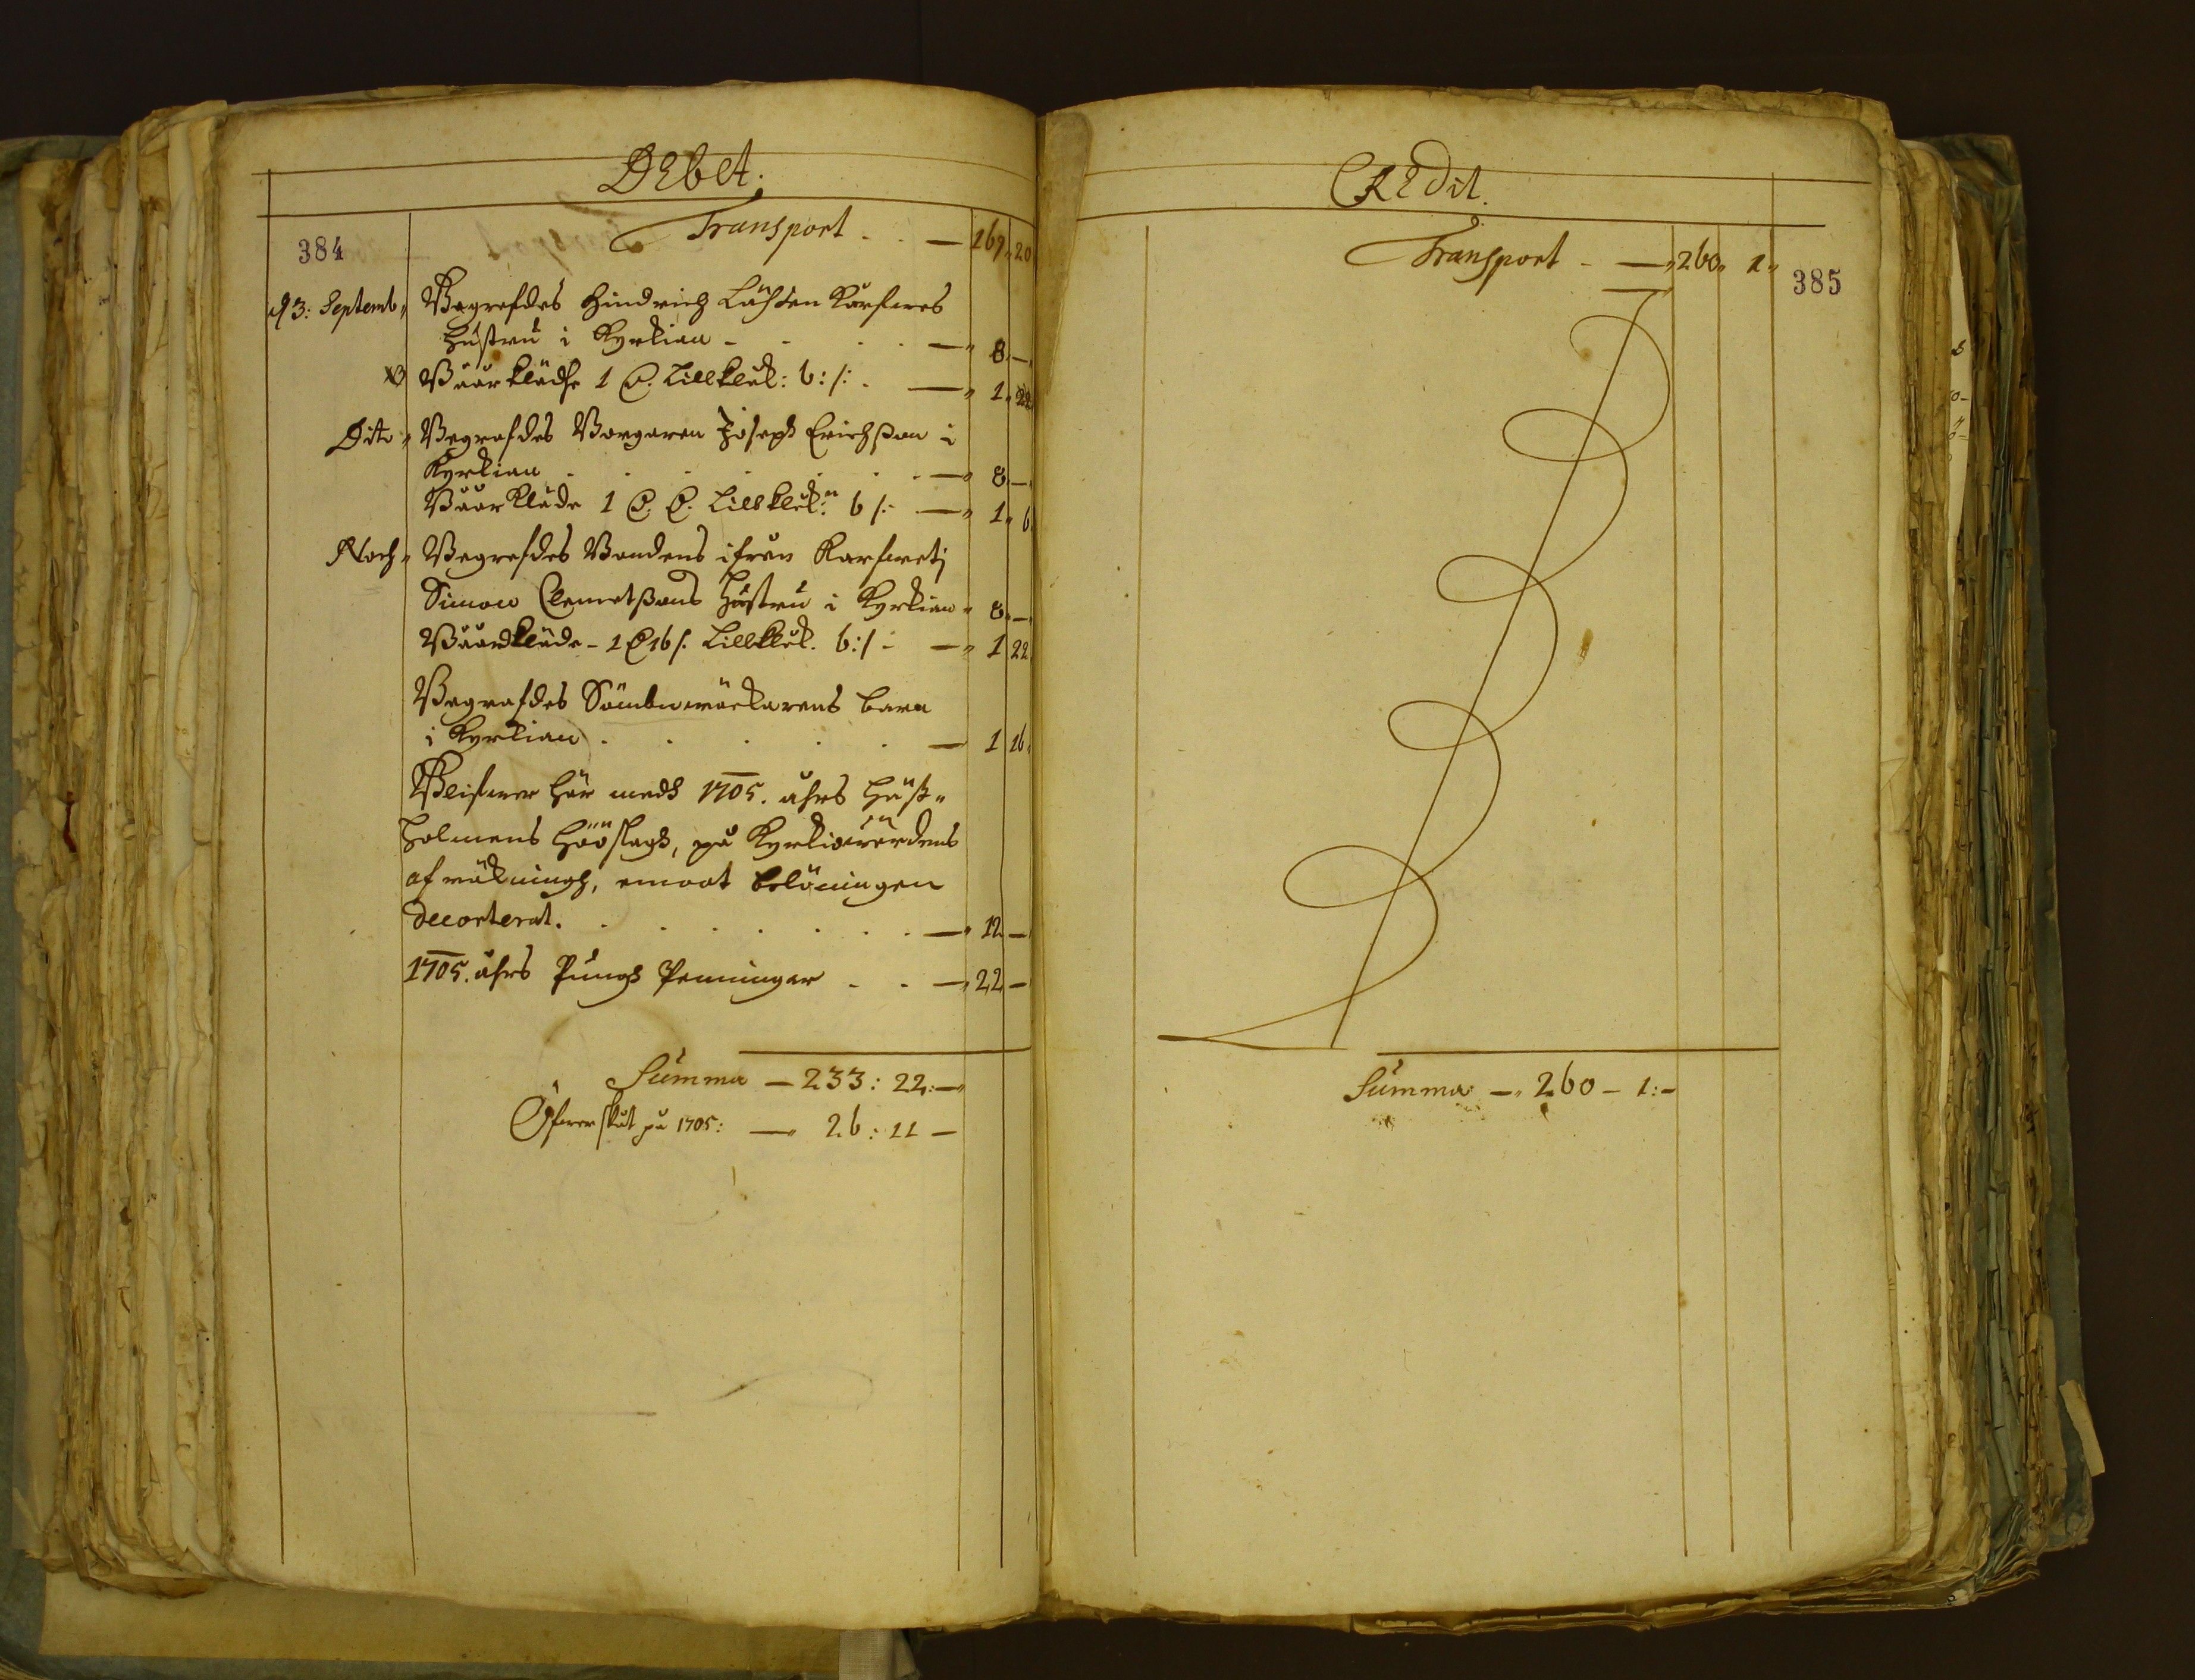 Debet.
384
Transport - - — 169 20
d 3: Septemb, Begrafdes Hindrich Låhsten Karfwes
hustru i Kyrkian - - — 8 —
Båårklädhe 1 C. Lillklåk: 6:/: - — 1 22
Dito Begrafdes Borgaren Joseph Erichßon i
Kyrkian - — 8 —
Båår Kläde 1 C. C. Lillklåk: 6 /:- — 1 6
Noch Begrafdes Bondens ifrån Karfweti
Simon Clemetßons Hustru i Kyrkian 8 —
Båårkläde - 1 C 16/: Lillklåk. 6:/- — 1 22
Begrafdes Sömbnwäckarens barn
i Kyrkian . . . . — 1 16
Blifwer här medh 1705. åhrs Häst„
holmens Hööslagh, på Kyrkiowärdens
afräkningh, emoot belöningen
decorterat. . . . — 12 —
1705. åhrs Pungh Penningar - - — 22 —
Summa — 233: 22:—
Öfwerskåt på 1705: — 26: 11 —
Credit.
Transport - — 260 1
385
Summa — 260 - 1:-